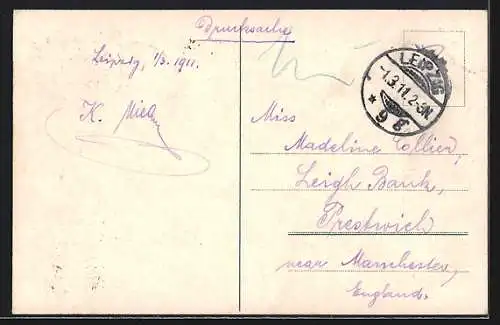 Drucksache
Leipzig, 1/3. 1911.
LEIPZIG
-1.3.11.2-3N.
* 9 g
K.
Miss
Madeline Collier,
Leigh Bank,
Prestwich
near Manchester,
England.